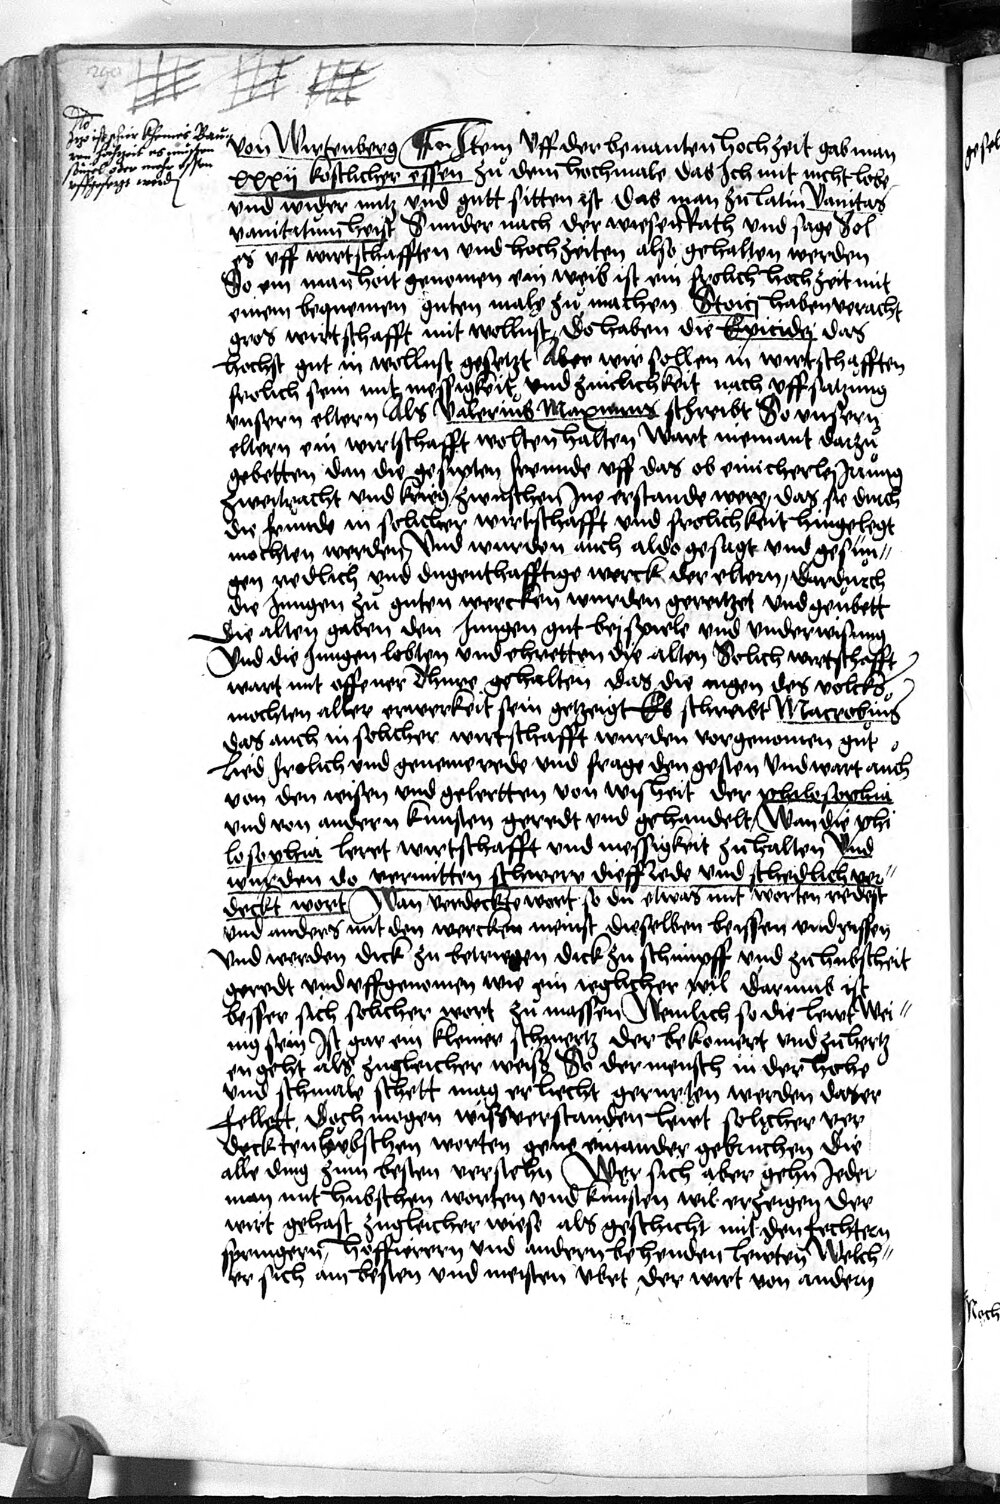 290
No
Izo ist schir kheines Bau⸗
ren hochzeit es müssen
sivil oder mehr essen
vffgesetzt werden
von Wirtenberg Item Vff der benanten hochzeit gab man
xxxij kostlicher essen zu dem hochmale das Ich mit nicht lobe
vnd wider nutz vnd gutt sitten ist das man zu latin Vanitas
vanitatum heist Sunder nach der wiesen Rath vnd sage Sol
es vff wirtschafften vnd hochzeiten also gehalten werden
So ein man hoit genomen ein weib ist ein frolich hochzeit mit
einem beqnemen guten male zu machen Stoici haben veracht
gros wirtschafft mit wollust, do haben die Epicidei das
hochst gut in wollust gesetzt Aber wir sollen in wirtschafften
frolich sein mit messigkeit vnd zuchlichkeit nach vffsatzung
vnsern eltern Als Valerius Maximus schreibt So vnsern
eltern ein wirtschafft wolten halten Wart niemant darzu
gebetten dan die gesipten freunde vff das ob einicherlej Irrung
zweitracht vnd krieg zwuschen Ine erstande were, das sie durch
die freunde in solicher wirtschafft vnd frolichkeit hingelegt
mochten werden, Vnd wurden auch aldo gesagt vnd gesun⸗
gen redlich vnd dugenthafftige werck der eltern, dardurch
die Jungen zu guten wercken wurden gereitzet vnd geubett
Die alten gaben den Jungen gut beispiele vnd vnderwisung
Vnd die Jungen lobten vnd ehretten die alten Solich wirtschafft
wart mit offener Dhure gehalten das die augen des volcks
mochten aller erwerkeit sein gezeigt Es schreibt Macrobius
das auch in solicher wirtschafft wurden vorgenomen gut
Lied frolich vnd geneme rede vnd frage den gesten Vnd wart auch
von den wisen vnd gelertten von wisheit der philosophia
vnd von andern kunsten geredt vnd gehandelt, Wan die phi
losophia lert wirtschafft vnd messigkeit zu halten Vnd
wurden do vermitten schwere dieff Rede vnd schedlich ver⸗
deckt wort Wan verdeckte wort so du etwas mit worten redest
vnd anders mit den wercken meinst dieselben beissen vnd rissen
Vnd werden dick zu betriegen dick zu schimpff vnd zu hubscheit
geredt vnd vffgenomen wie ein ieglicher wil darumb ist
besser sich solicher wort zu massen Nemlich so die lewt Wei⸗
nig sein Ist gar ein kleiner schmertz der bekomert vnd zu hertz
en geht als zugleicher weiß So der mensch in der hohe
vnd schmale schett mag er liecht gerurten werden das er
fellett, Doch mogen wißverstanden lewt solicher ver
deckten hubschen worten gene einander gebruchen die
alle ding zum besten verstehn Wer sich aber gehn Jeder
man mit hubschen worten vnd kunsten wil erzeigen der
wirt gehast zugleicher wiese als geschicht mit den fechtern
springern, hoffierern vnd andern behenden lewten Welch⸗
er sich am besten vnd meisten vbet der wirt von andern